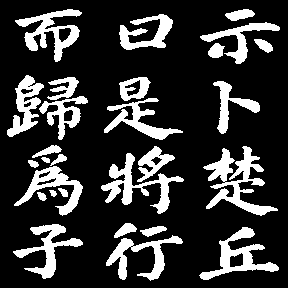 示卜楚丘
曰是將行
而歸為子